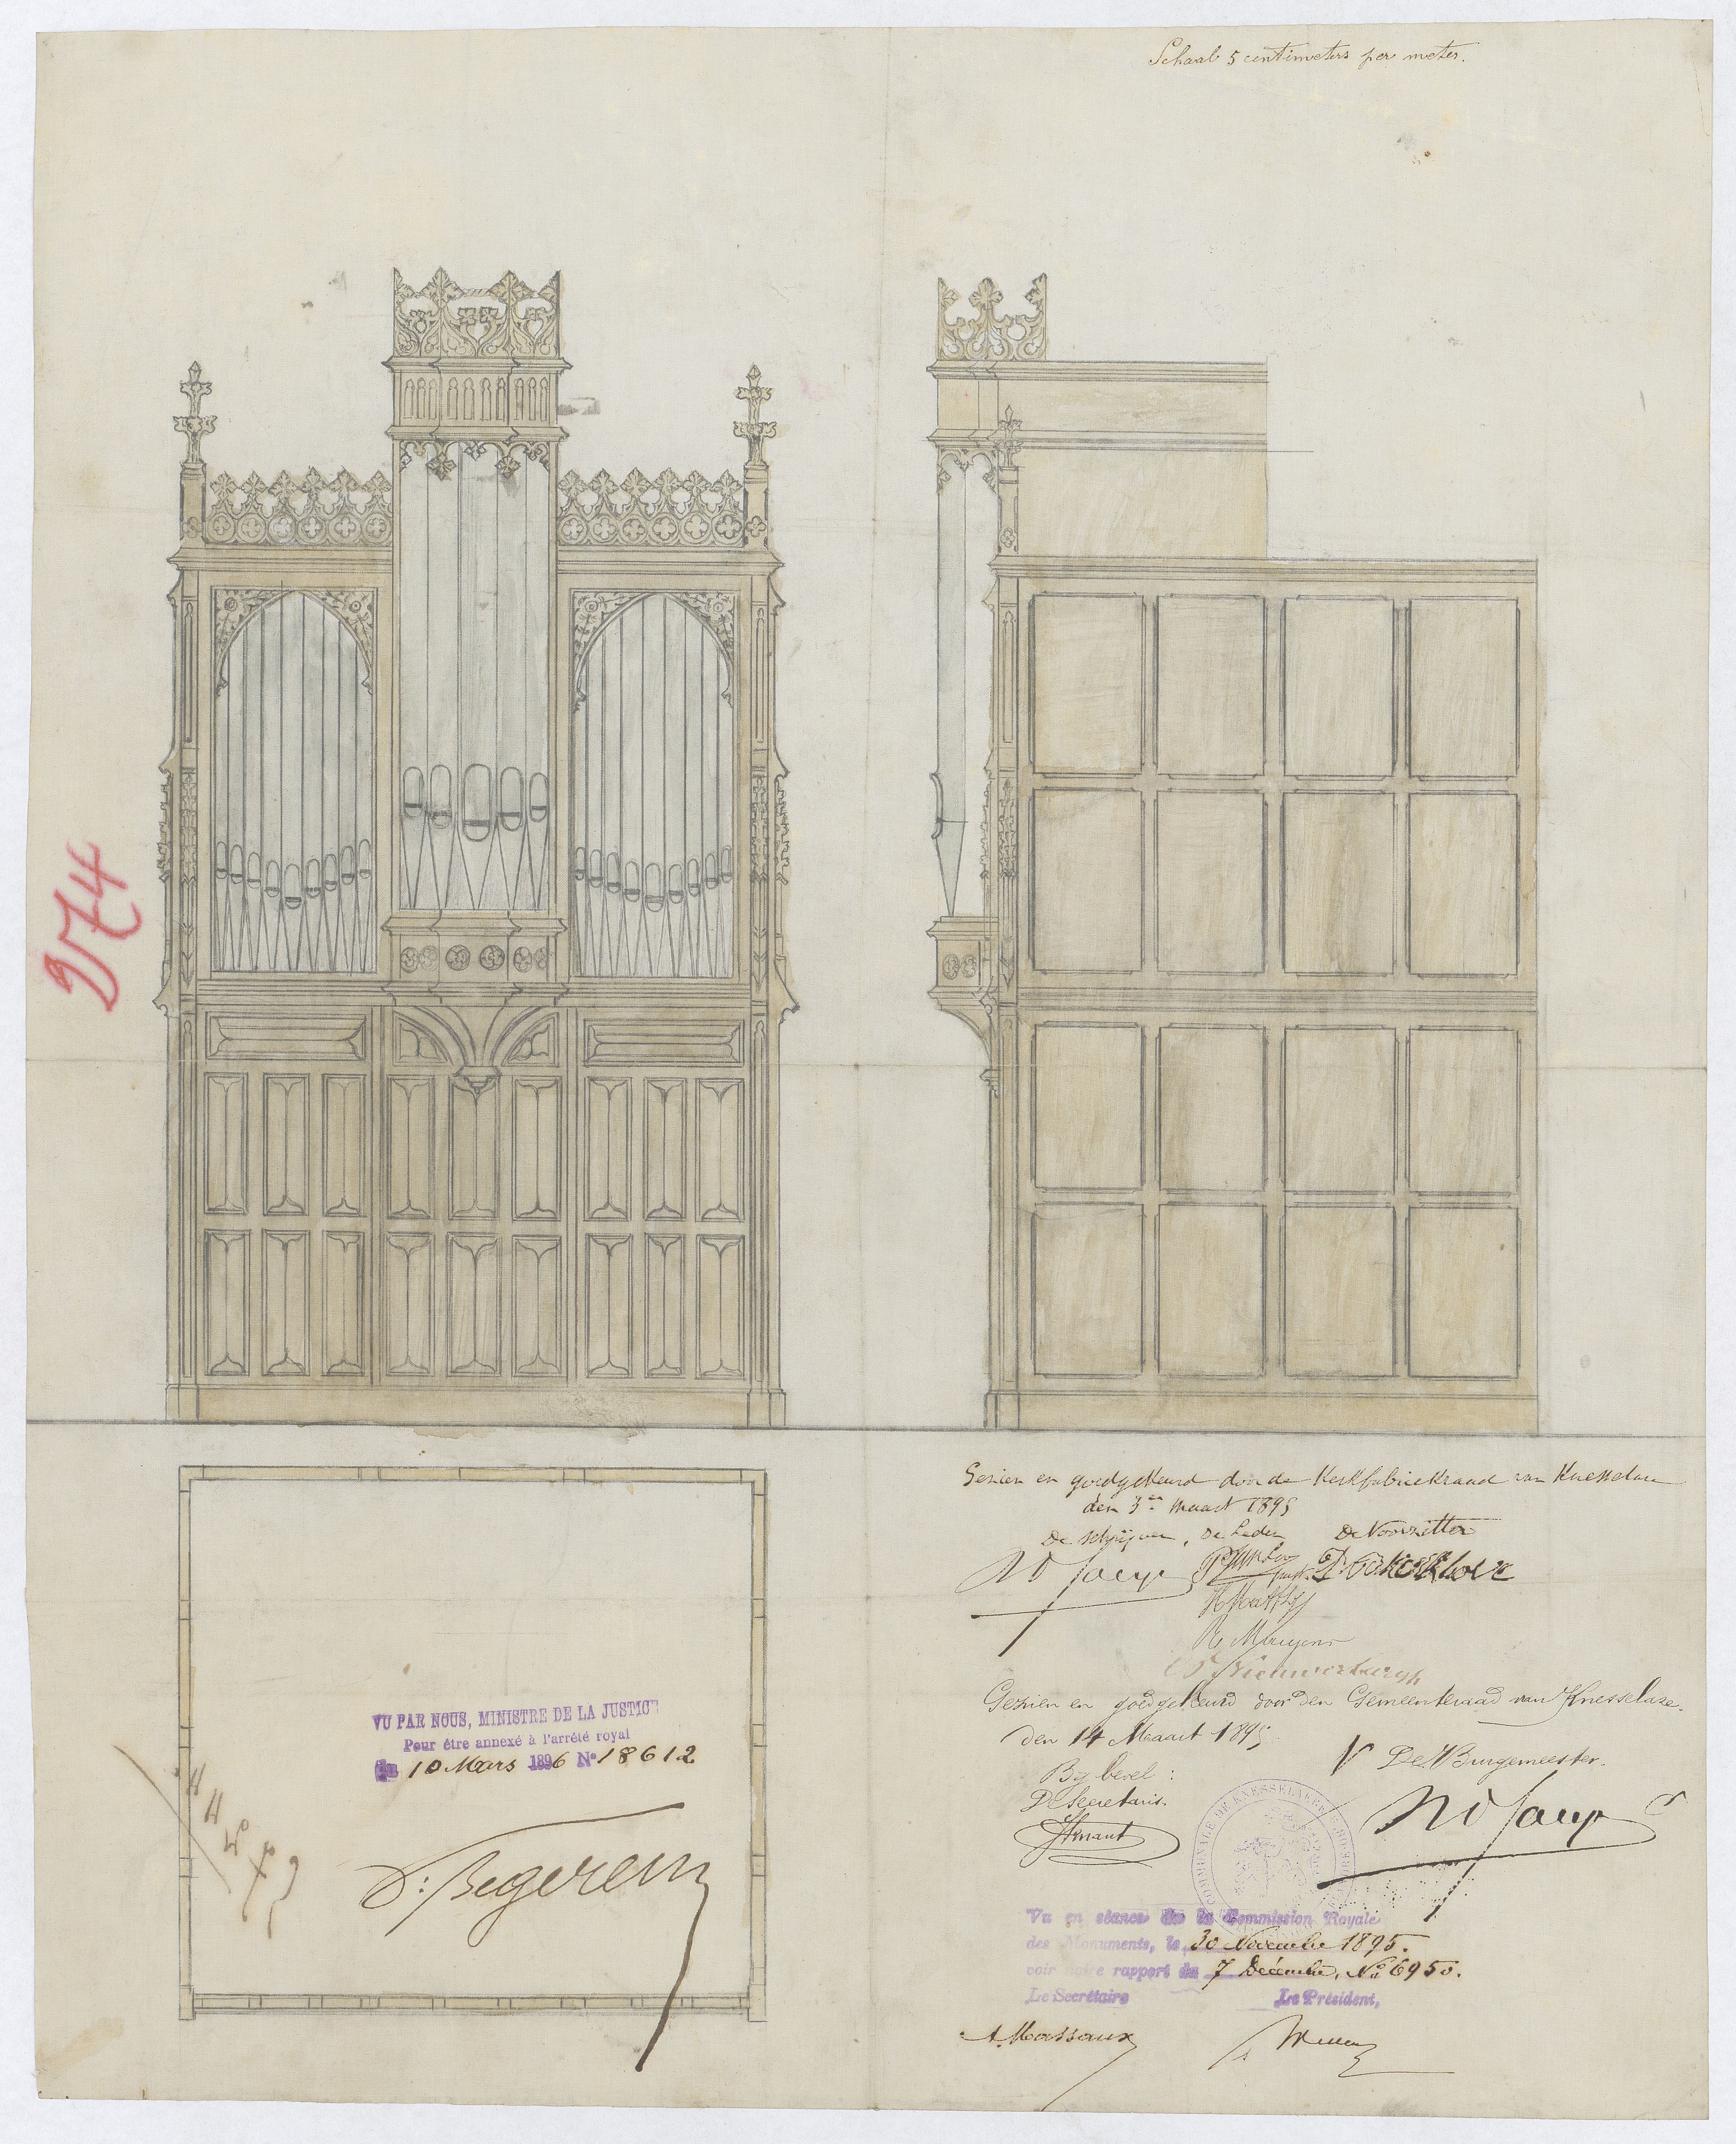 Schaal 5 centimeters per meter.
974
Gezien en goedgekeurd door de Kerkfabriekraad van Knesselare
den 3en Maart 1895
De schrijver, De Leden De Voorzitter
Gezien en goedgekeurd door den Gemeenteraad van Knesselare.
den 14 Maart 1895
By bevel :
De Secretaris.
De Burgemeester.
VU PAR NOUS, MINISTRE DE LA JUSTICE
Pour être annexé à l'arrêté royal
du 10 Mars 1896 No 18612
V. Begerem
Vu en séance de la Commission Royale
des Monuments, le 30 Novembre 1895.
voir notre rapport du 7 Décembre, No 6950.
Le Secrétaire Le Président,
A. Massaux